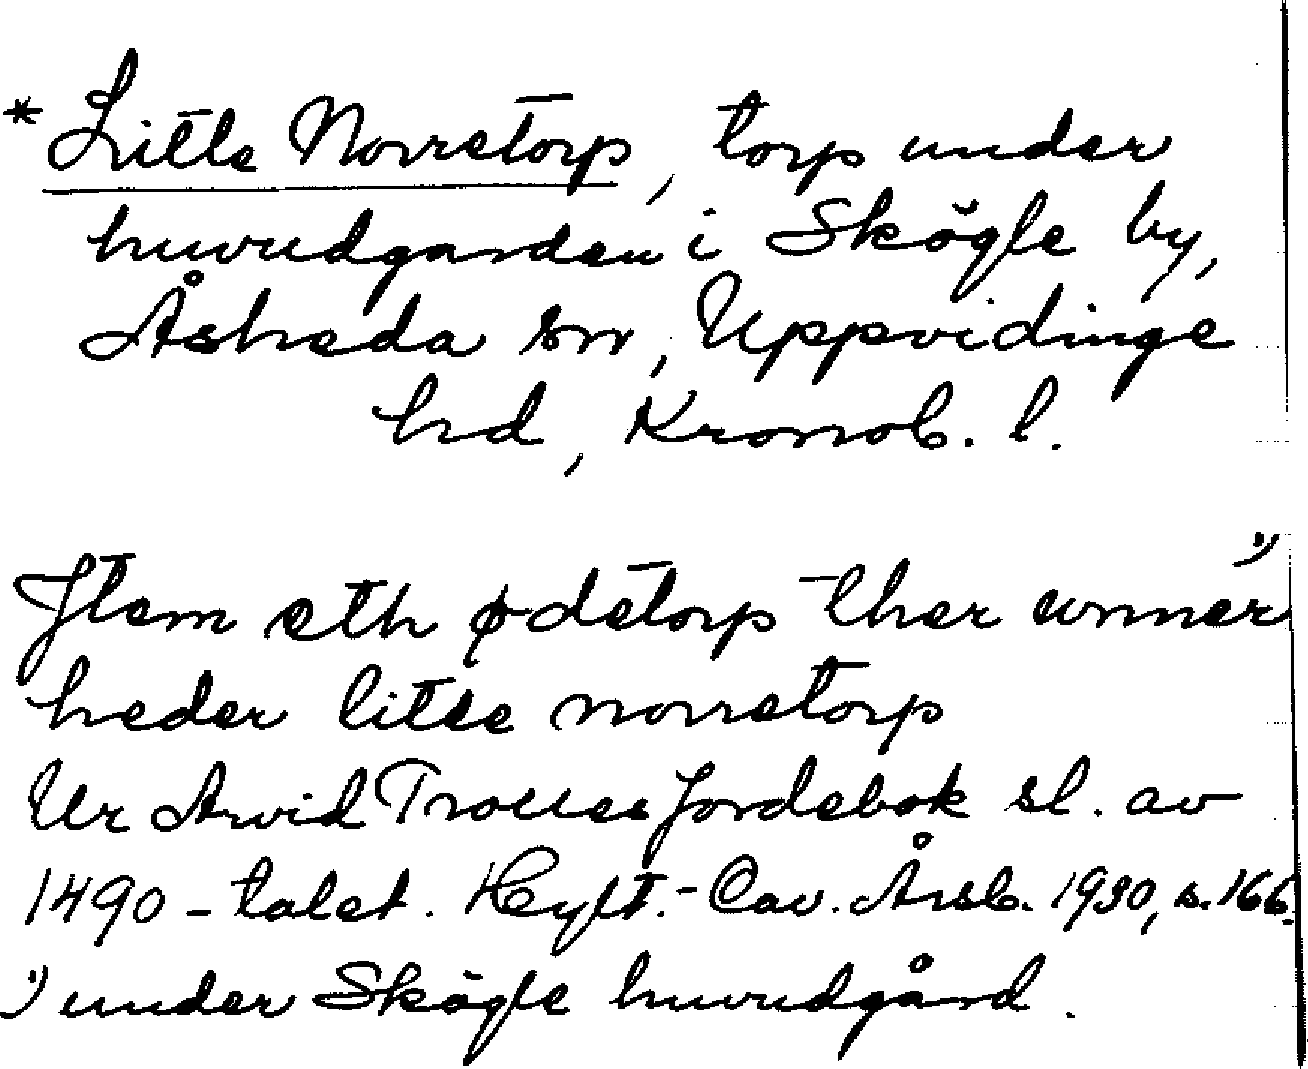 * Litle Norretorp, torp under
huvudgarden i Skögle by,
Åsheda sn, Uppvidinge
hd, Kronob. l.
Jtem eth ødetorp ther wnner 1)
heder litle norretorp
Ur Arvid Trolles Jordebok sl. av
1490-talet. Hylt.-Cav. Årsb. 1930, s. 166.
1) under Skögle huvudgård.